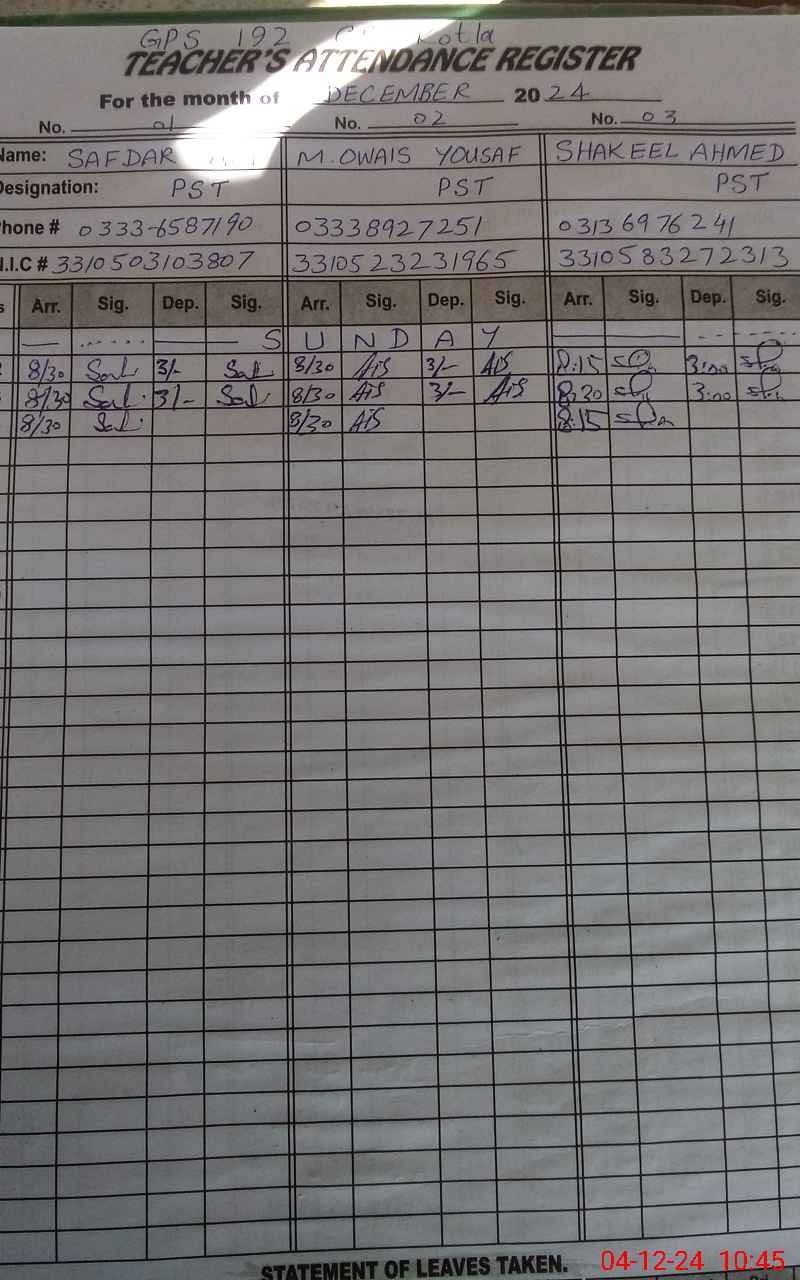 GPS 192 Kotla
TEACHER'S ATTENDANCE REGISTER
For the month of DECEMBER 2024
No. 01 No. 02 No. 03
Name: SAFDAR M. OWAIS YOUSAF SHAKEEL AHMED
Designation: PST PST PST
Phone # 0333-6587190 03338927251 03136976241
N.I.C # 3310503103807 3310523231965 3310583272313
Arr. Sig. Dep. Sig. Arr. Sig. Dep. Sig. Arr. Sig. Dep. Sig.
S U N D A Y
8/30 3/- 8/30 3/- 8:15 3:00
8/30 3/- 8/30 3/- 8:20 3:00
8/30 8/30 8:15
STATEMENT OF LEAVES TAKEN.
04-12-24 10:45